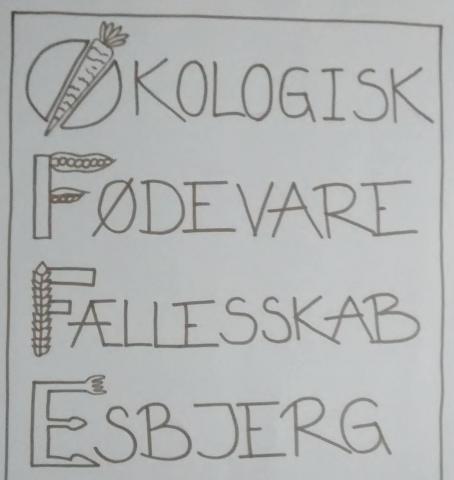 ØKOLOGISK
FØDEVARE
FÆLLESSKAB
ESBJERG